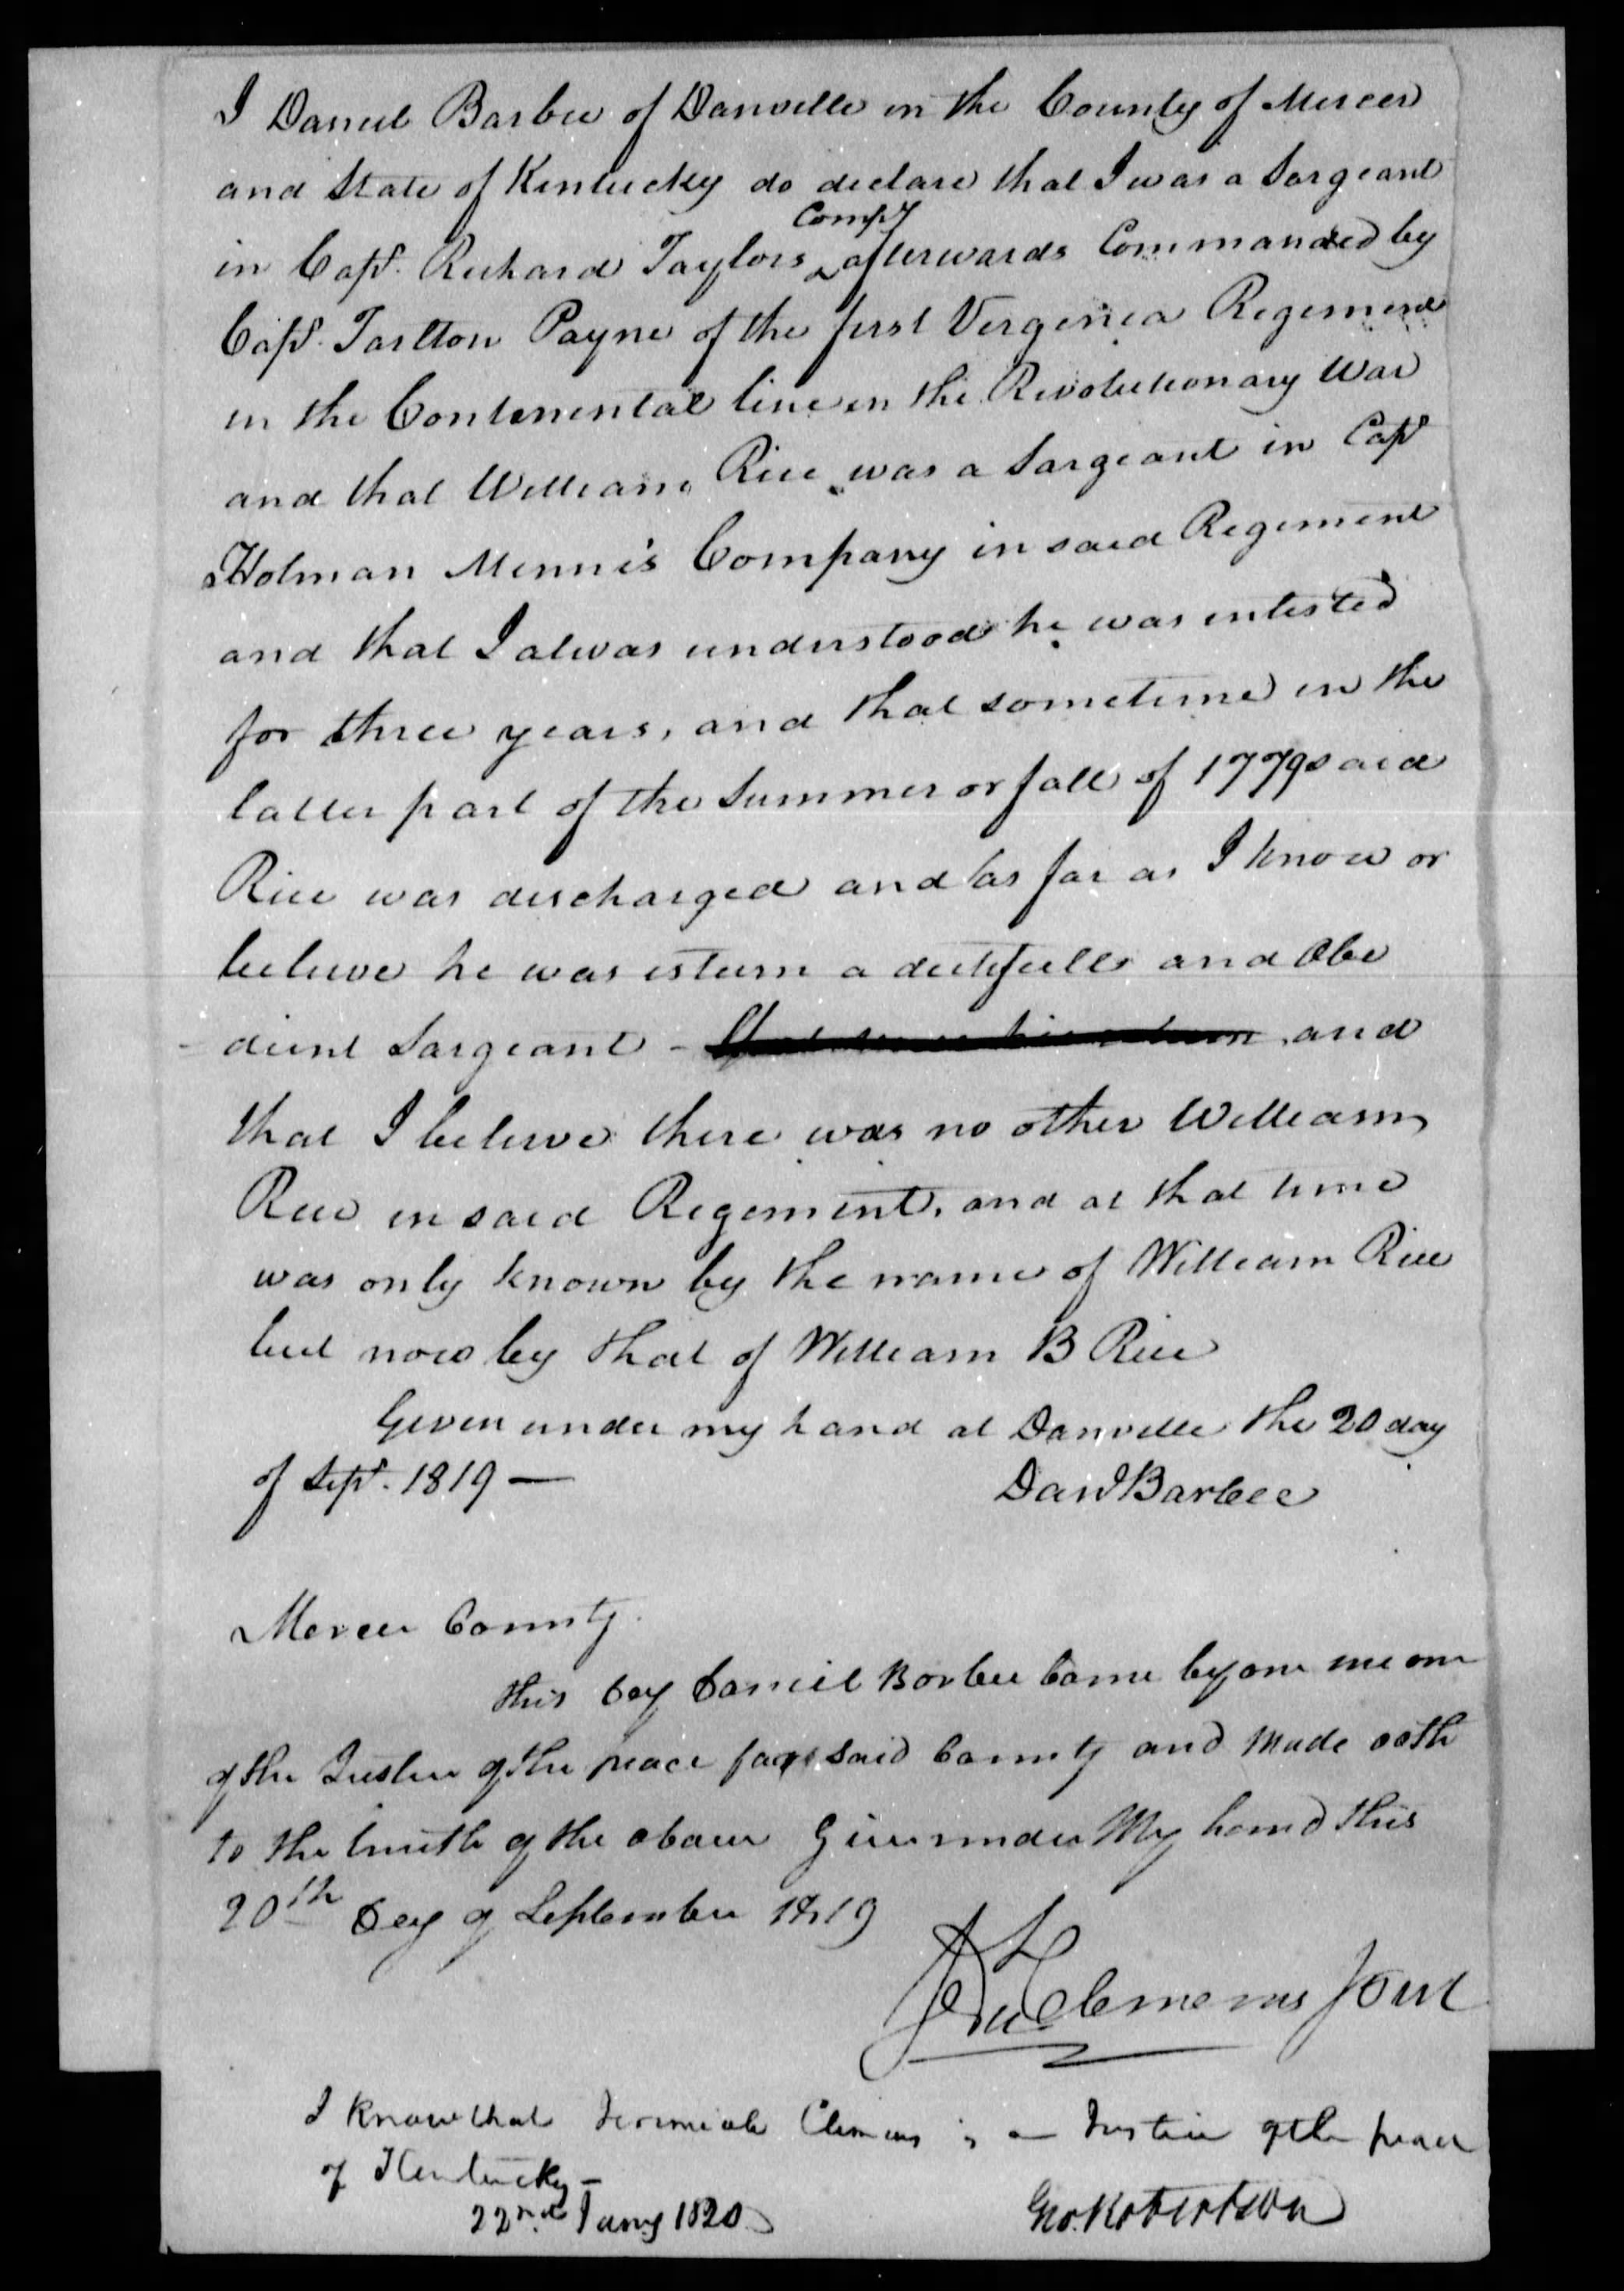 I Daniel Barbee of Danville in the County of Mercer
and State of Kentucky do declare that I was a Sargeant
in Capt. Richard Taylors Compy afterwards Commanded by
Capt. Tarlton Payne of the first Virginia Regiment
in the Continental line in the Revolutionary War
and that William Rice was a Sargeant in Capt
Holman Minnis Company in said Regiment
and that I alwas understood he was inlisted
for three years, and that sometime in the
latter part of the Summer or fall of 1779 said
Rice was discharged and as far as I know or
believe he was esteem a dutifull and Obe
dient Sargeant - and
that I believe there was no other William
Rice in said Regiment, and at that time
was only known by the name of William Rice
but now by that of William B Rice
Given under my hand at Danville the 20 day
of Sept. 1819 —
Danl Barbee
Mercer County
this Day Daniel Barbee Came before me one
of the Justice of the peace for said County and Made oath
to the truith of the above Given under My hand this
20th Day of September 1819
Clemens
I know that Jeremiah Clemens is a Justice of the peace
of Kentucky —
22nd Jany 1820
Geo. Robertson